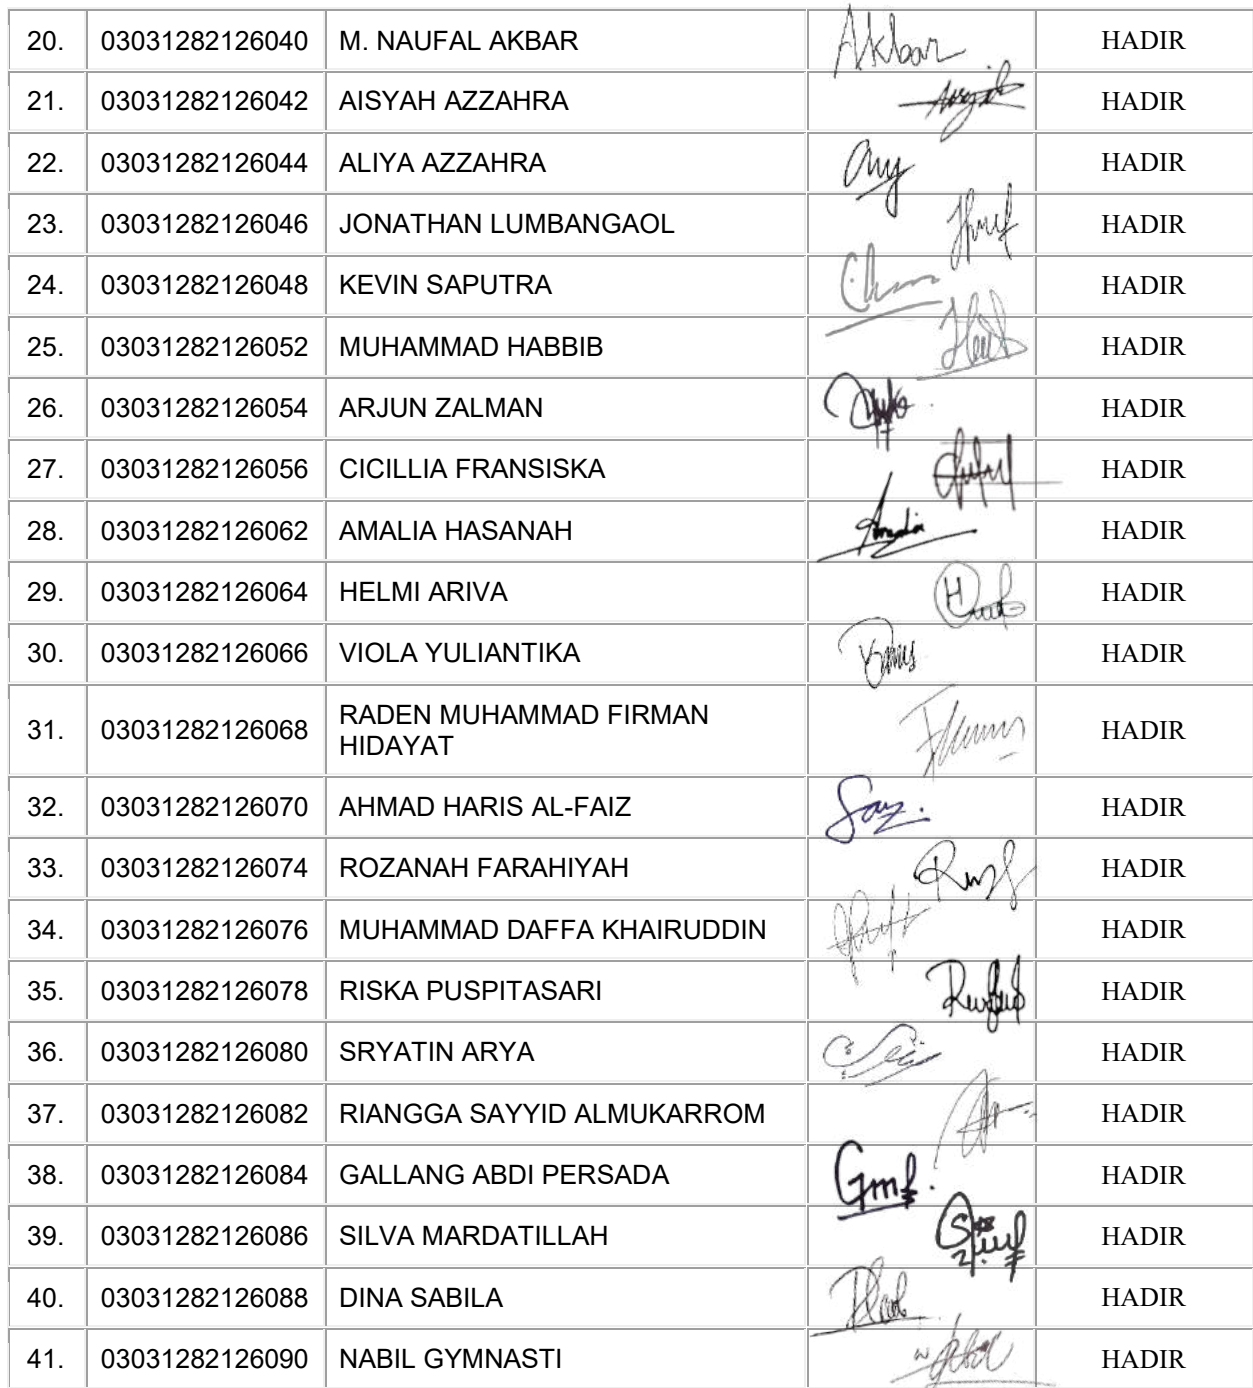 20. 03031282126040 M. NAUFAL AKBAR Akbar HADIR
21. 03031282126042 AISYAH AZZAHRA HADIR
22. 03031282126044 ALIYA AZZAHRA HADIR
23. 03031282126046 JONATHAN LUMBANGAOL HADIR
24. 03031282126048 KEVIN SAPUTRA HADIR
25. 03031282126052 MUHAMMAD HABBIB HADIR
26. 03031282126054 ARJUN ZALMAN HADIR
27. 03031282126056 CICILLIA FRANSISKA HADIR
28. 03031282126062 AMALIA HASANAH Amalia HADIR
29. 03031282126064 HELMI ARIVA HADIR
30. 03031282126066 VIOLA YULIANTIKA HADIR
31. 03031282126068 RADEN MUHAMMAD FIRMAN HADIR
HIDAYAT
32. 03031282126070 AHMAD HARIS AL-FAIZ HADIR
33. 03031282126074 ROZANAH FARAHIYAH HADIR
34. 03031282126076 MUHAMMAD DAFFA KHAIRUDDIN HADIR
35. 03031282126078 RISKA PUSPITASARI HADIR
36. 03031282126080 SRYATIN ARYA HADIR
37. 03031282126082 RIANGGA SAYYID ALMUKARROM HADIR
38. 03031282126084 GALLANG ABDI PERSADA HADIR
39. 03031282126086 SILVA MARDATILLAH HADIR
40. 03031282126088 DINA SABILA HADIR
41. 03031282126090 NABIL GYMNASTI HADIR